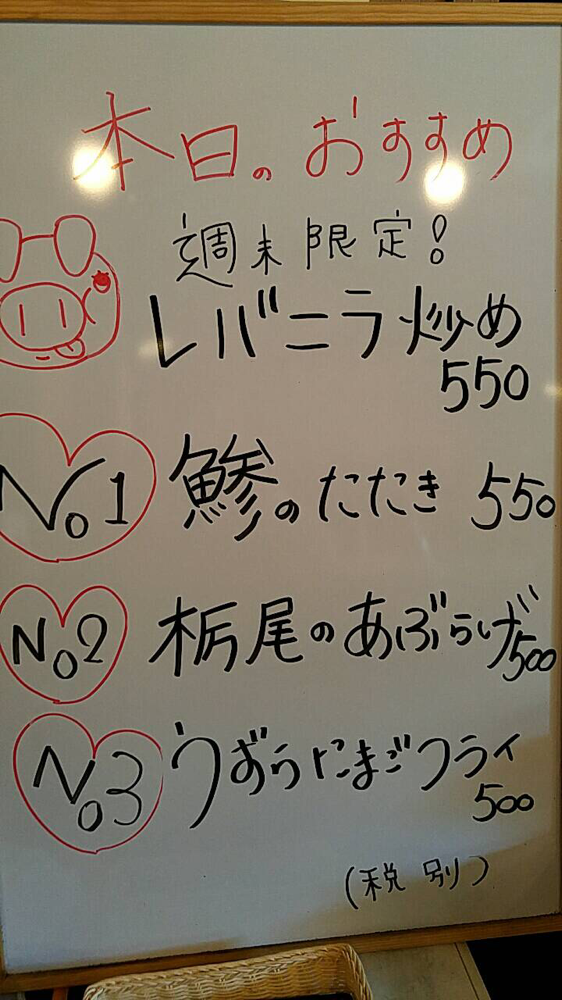 本日のおすすめ
週末限定!
レバニラ炒め
550
No1 鯵のたたき 550
No2 栃尾のあぶらげ 500
No3 うずらたまごフライ
500
(税別)